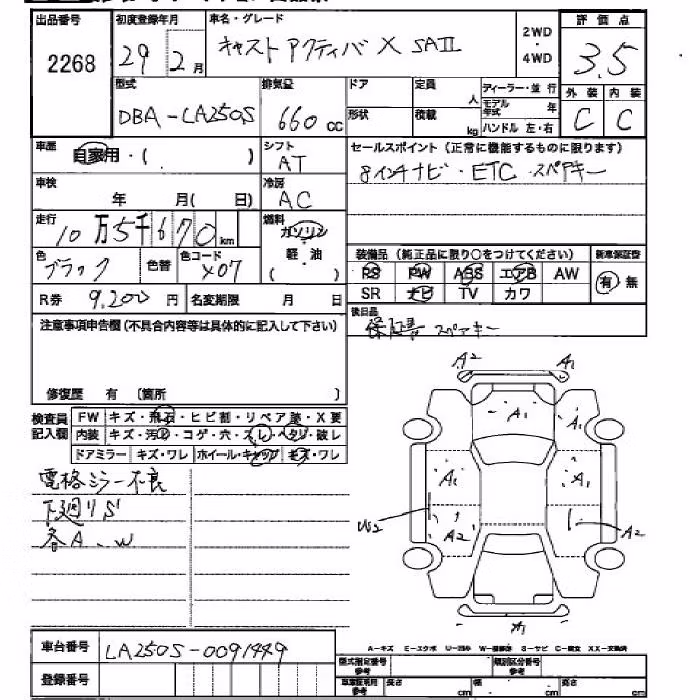 出品番号 初度登録年月 車名・グレード 評価点
2268 29年2月 キャスト アクティバ X SAII 2WD・4WD 3.5
型式 排気量 ドア 定員 ディーラー・並行 外装 内装
DBA-LA250S 660cc 人 モデル年式 年 C C
形状 積載 kg ハンドル 左・右
車歴 自家用・( ) シフト AT セールスポイント(正常に機能するものに限ります)
8インチナビ・ETC スペアキー
車検 年 月( 日) 冷房 AC
走行 10万5千670km 燃料 ガソリン・軽油( )
色 ブラック 色替 色コード X07
装備品(純正品に限り○をつけてください) 新車保証書
PS PW ABS エアB AW 有・無
SR ナビ TV カワ
R券 9,200円 名変期限 月 日
後日品 保証書 スペアキー
注意事項申告欄(不具合内容等は具体的に記入して下さい)
修復歴 有 〔箇所 〕
検査員記入欄
FW キズ・飛石・ヒビ割・リペア跡・X要
内装 キズ・汚れ・コゲ・穴・スレ・ヘタリ・破レ
ドアミラー キズ・ワレ ホイール・キャップ キズ・ワレ
電格ミラー不良
下廻りS
各A、W
A2 A1
A1
A1 A1
W2 A2 A2
A1
A-キズ E-エクボ U-凹み W-補修跡 S-サビ C-腐食 XX-交換済
車台番号 LA250S-0091449
登録番号
型式指定番号 参考 類別区分番号 参考
車庫証明用 参考 長さ cm 幅 cm 高さ cm